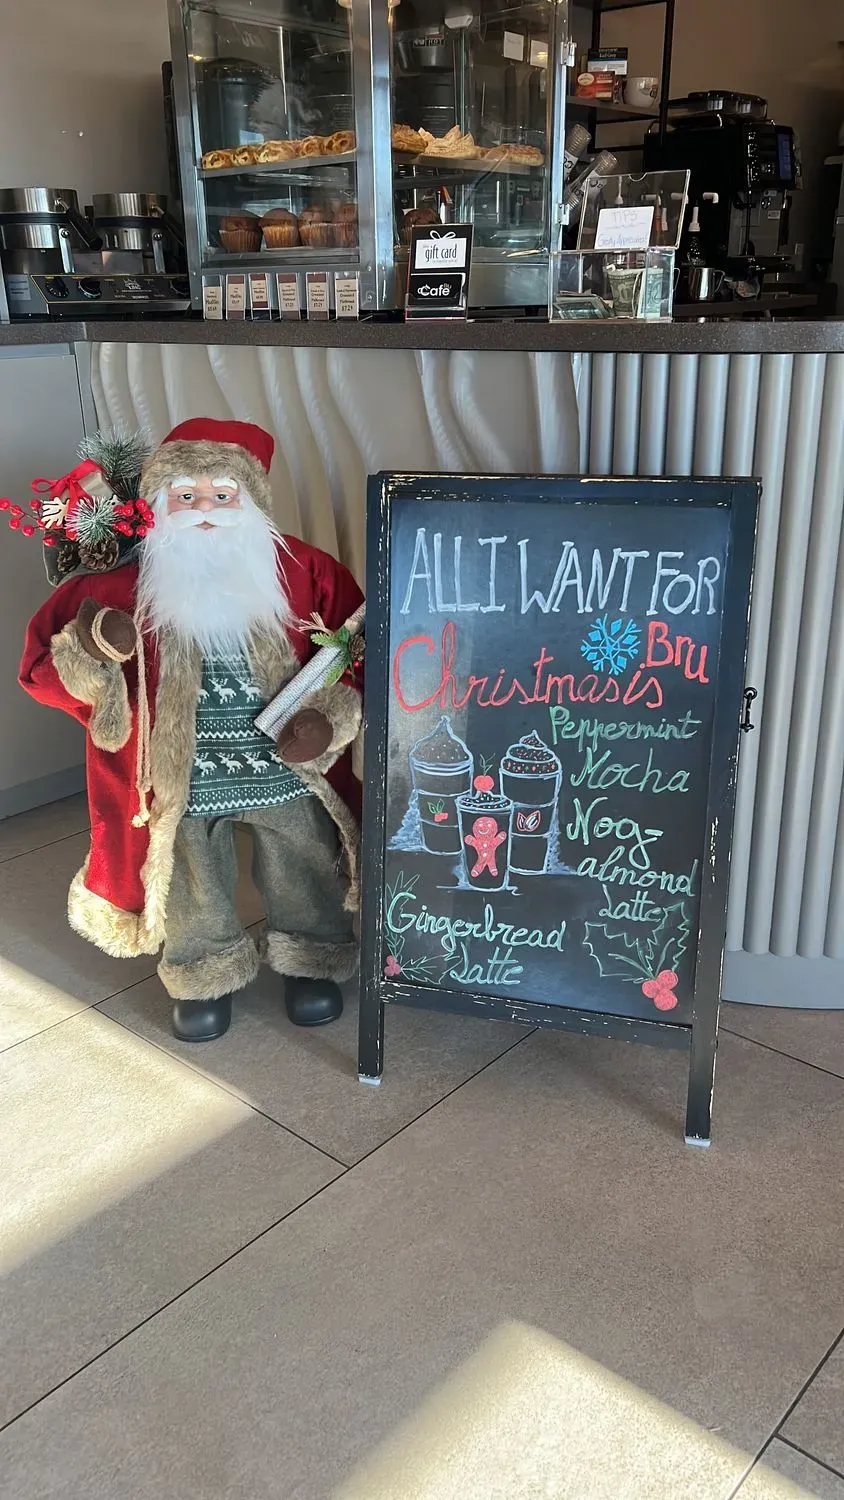 gift card
Café
TIPS
Greatly Appreciated
ALL I WANT FOR
Christmas is Bru
Peppermint
Mocha
Nog-
almond
Latte
Gingerbread
Latte